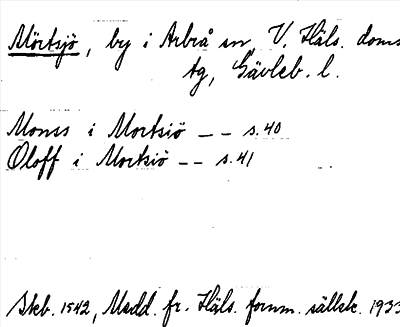 Mörtsjö, by i Arbrå sn, V. Häls. doms
tg, Gävleb. l.
Monss i Mortsiö – – s. 40
Oloff i Mortsiö – – s. 41
Skb. 1542, Medd. fr. Häls. fornm. sällsk. 1933